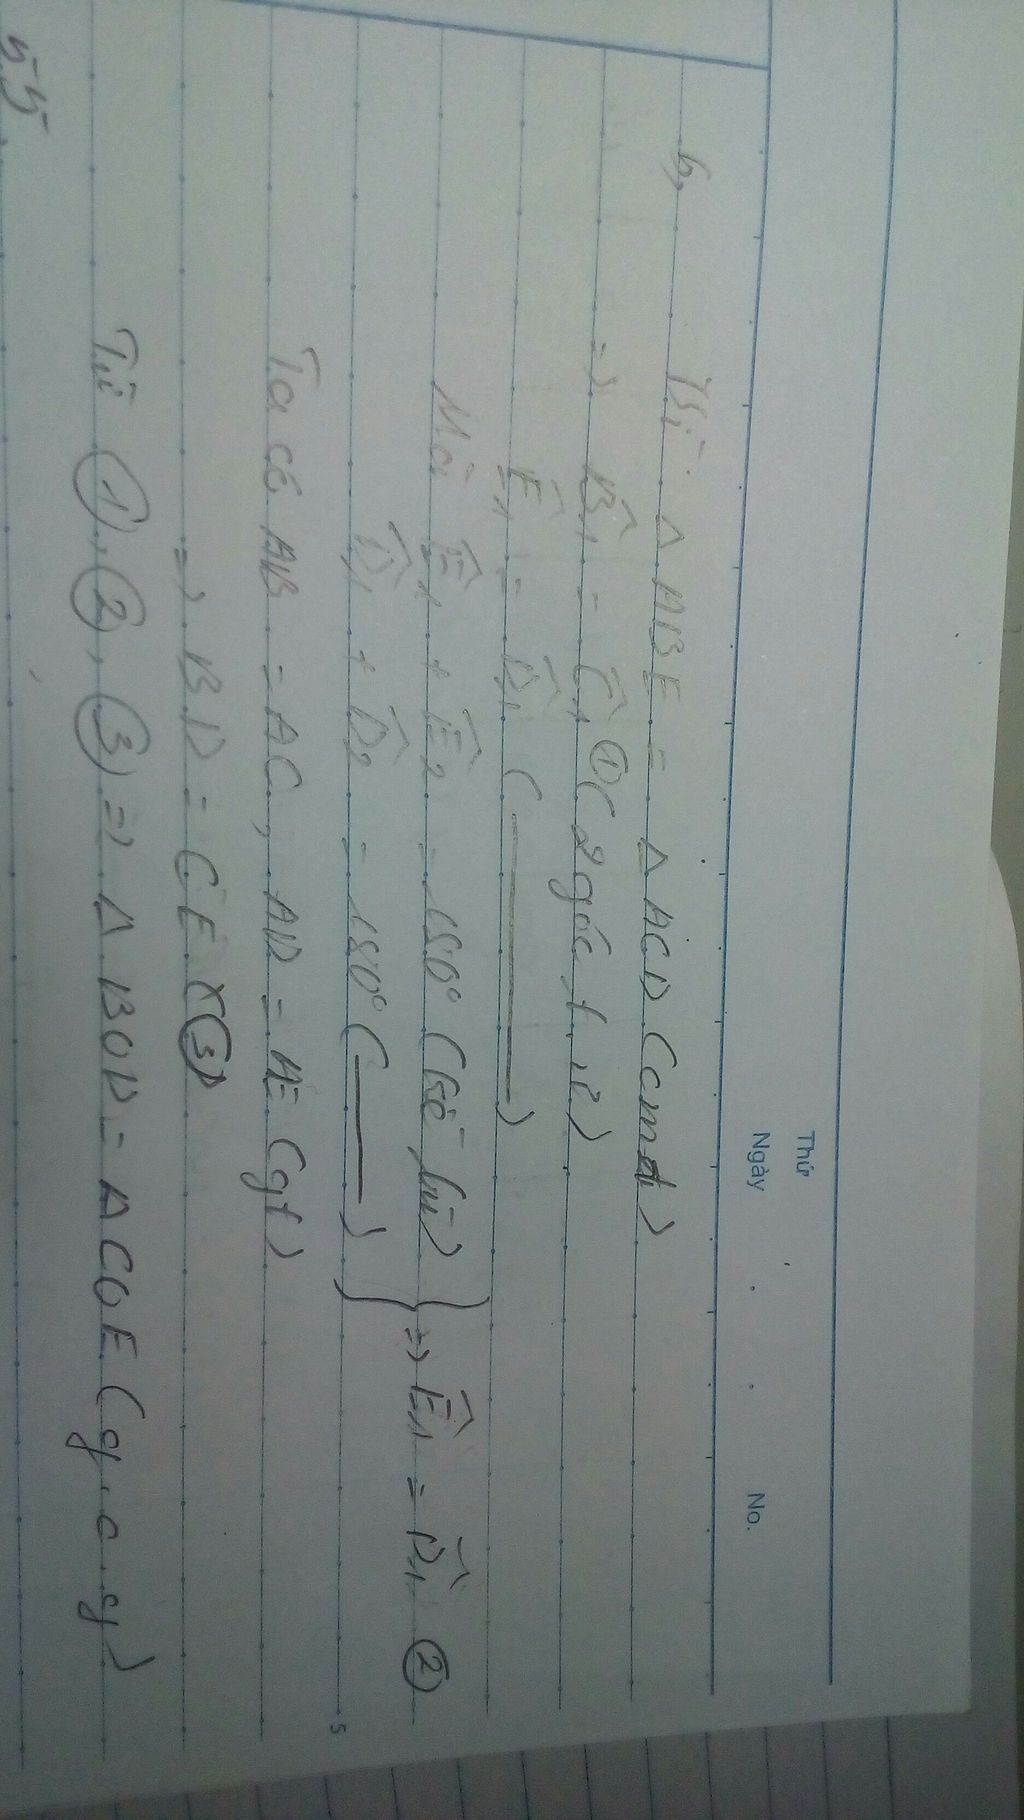 Thứ
Ngày . . No.
b, Vì: Δ ABE = Δ ACD (cmt)
=> B̂₁ = Ĉ₁ ① (2 góc t.ứ)
Ê₁ = D̂₁ (———)
Mà Ê₁ + Ê₂ = 180° (kề bù)
D̂₁ + D̂₂ = 180° (———) } => Ê₁ = D̂₁ ②
5
Ta có AB = AC, AD = AE (gt)
=> BD = CE ③
Từ ①, ②, ③ => Δ BOD = Δ COE (g.c.g)
55